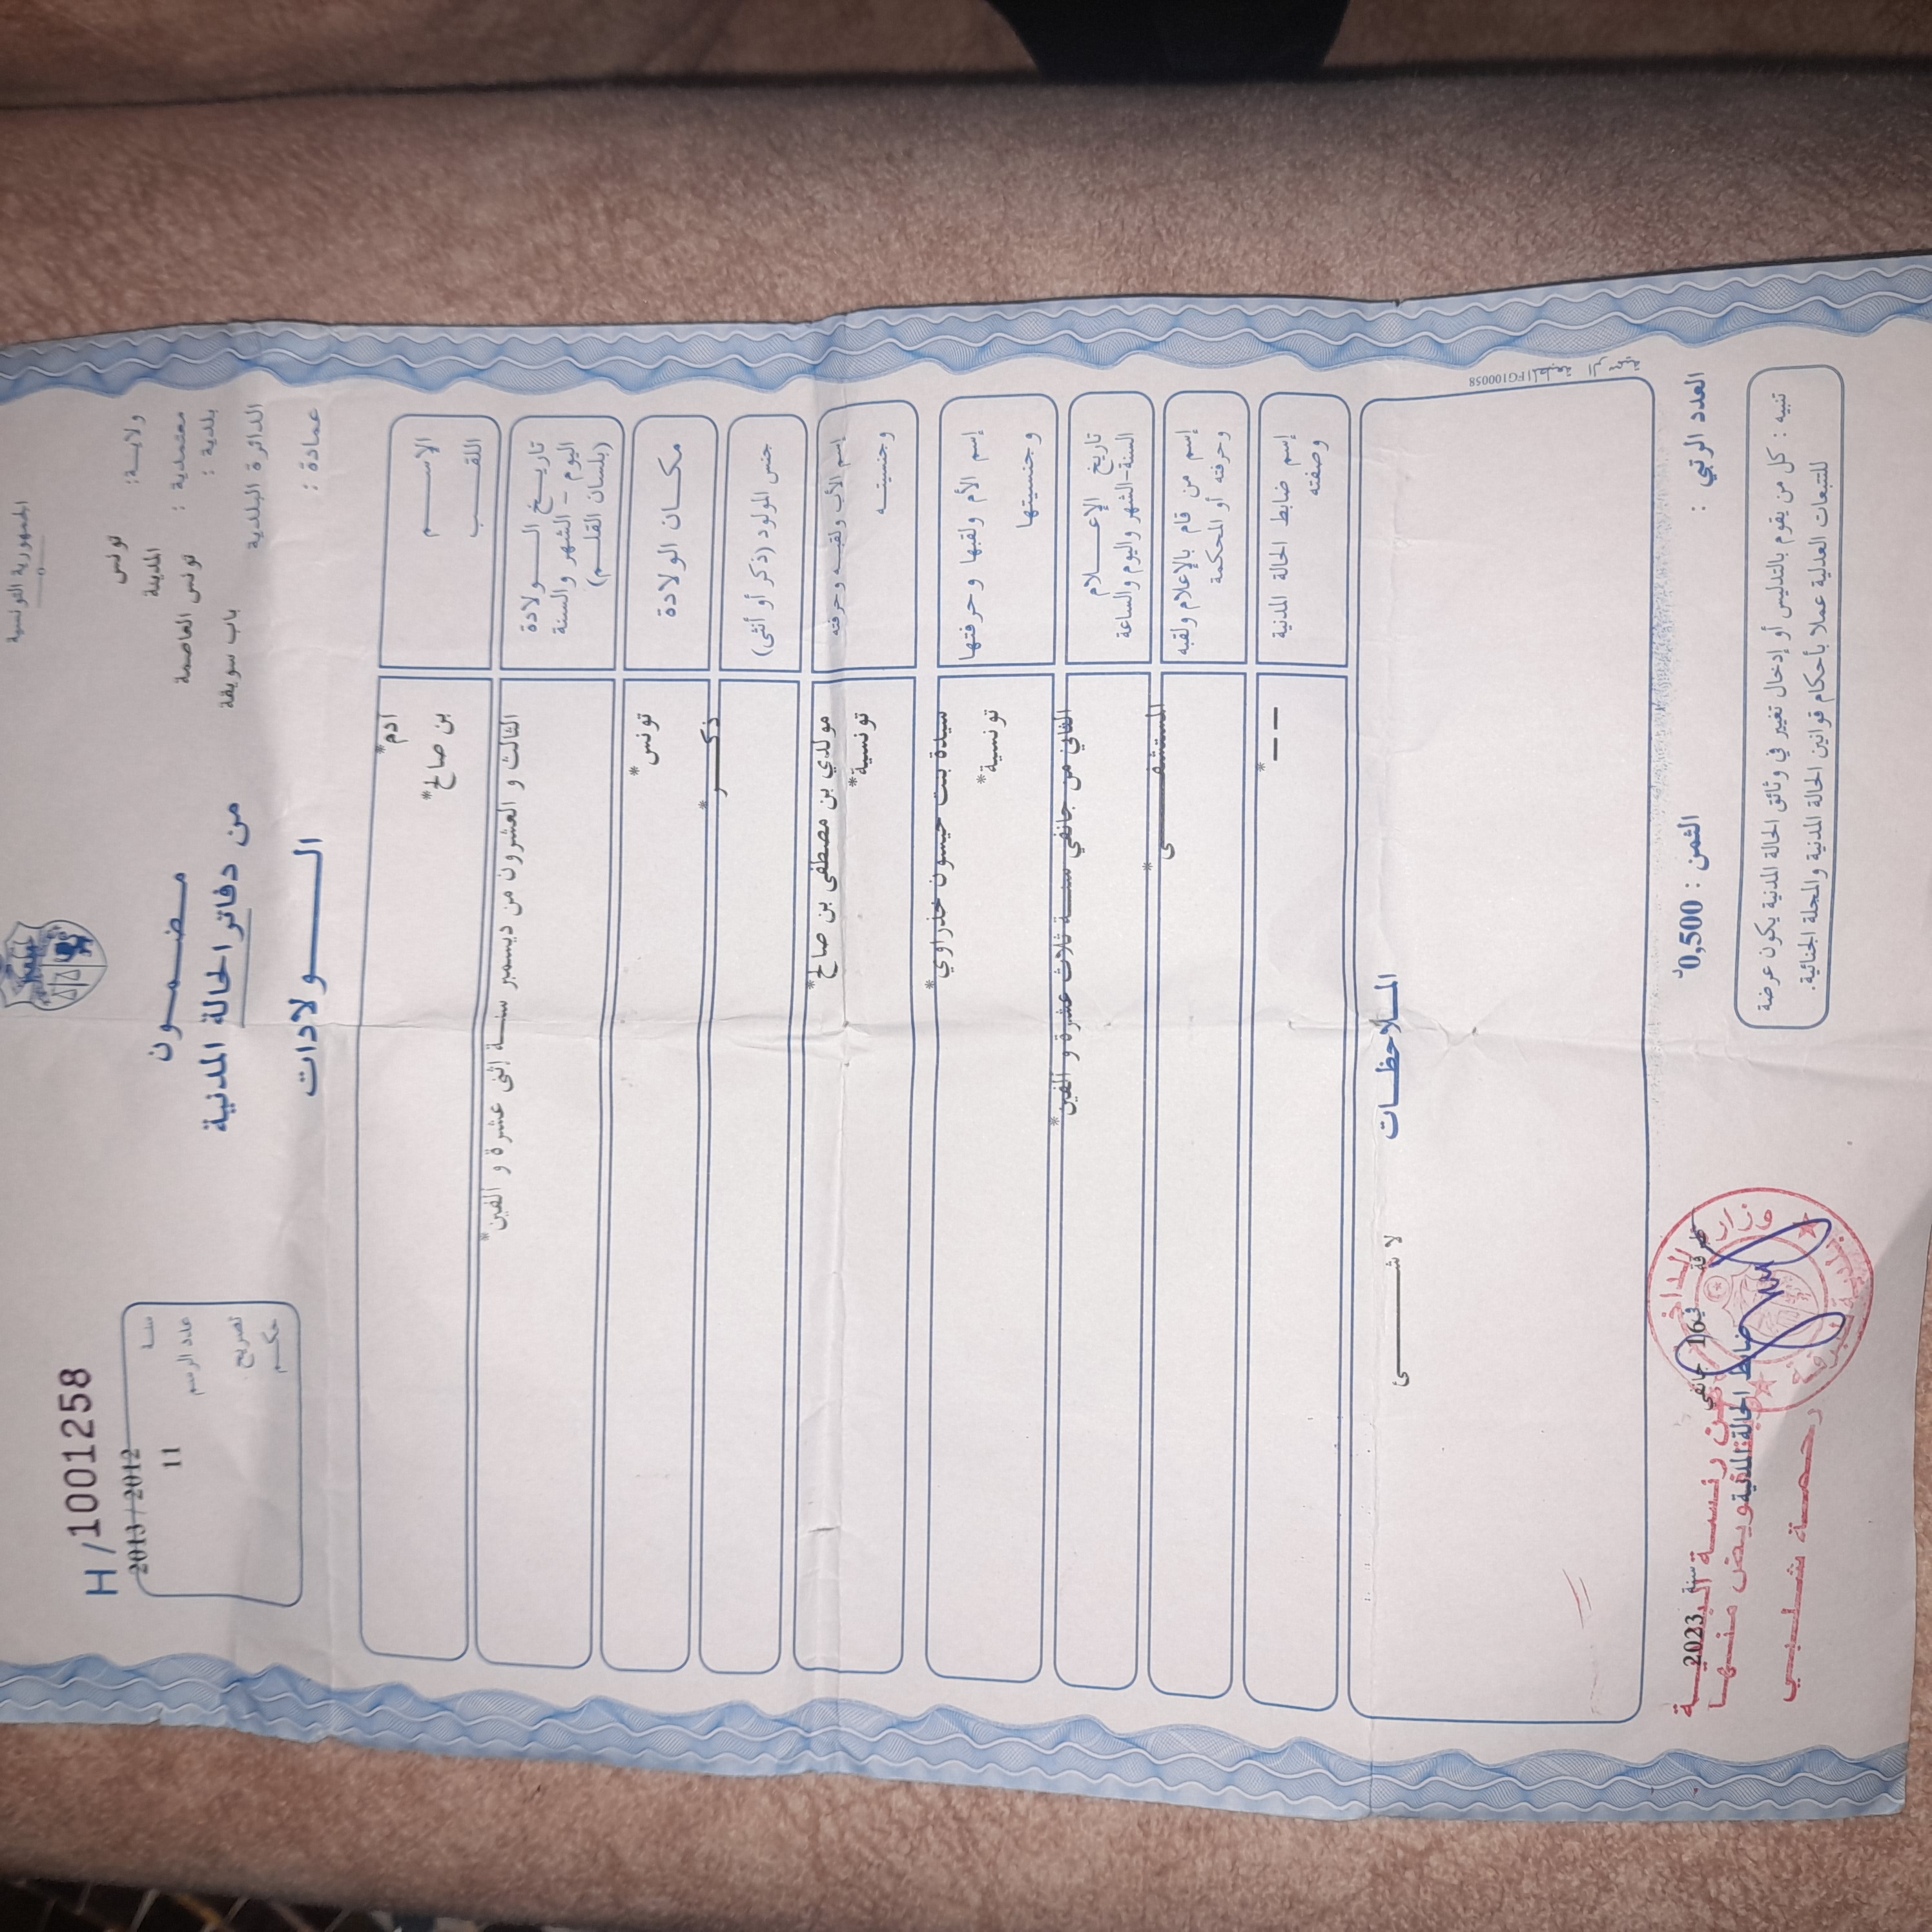 الجمهورية التونسية
H/1001258
ولايـة: تونس
معتمدية : المدينة
بلدية : تونس العاصمة
الدائرة البلدية باب سويقة
عمادة :
مـضـمـــون
من دفاتر الحالة المدنية
الـــــولادات
سنـة 2013 / 2012
عدد الرسم 11
تصريح
حكـــم
الاســـم آدم*
اللقـــب بن صالح*
تاريــخ الـــولادة
اليوم - الشهر والسنة
(بلسان القلـــم)
الثالث و العشرون من ديسمبر سنـــة إثنى عشرة و ألفين*
مكـــان الولادة تونس*
جنس المولود (ذكر أو أنثى) ذكـــــر*
إسم الأب ولقبـه وحرفته مولدي بن مصطفى بن صالح*
وجنسيتـــه تونسية*
إسم الأم ولقبها وحرفتها سيدة بنت حيسون خذراوي*
وجنسيتهـا تونسية*
تاريخ الإعـــلام
السنة-الشهر واليوم والساعة
الثاني من جانفي سنـــة ثلاث عشرة و ألفين*
إسم من قام بالإعلام ولقبه
وحرفته أو المحكمة
المستشفـــــى*
إسم ضابط الحالة المدنية
وصفته
---*
الملاحظـــات
لا شـــــئ
FG100058 المطبعة الرسمية
العدد الرتبي :
الثمن : 0,500د
طبرقة في 16 جانفي سنة 2023
ضابط الحالة المدنية
عن رئيسة البلدية
وبتفويض منها
رحمة شلبي
وزارة الداخلية
طبرقة
تنبيه : كل من يقوم بالتدليس أو إدخال تغيير في وثائق الحالة المدنية يكون عرضة
للتتبعات العدلية عملا بأحكام قوانين الحالة المدنية والمجلة الجنائية.